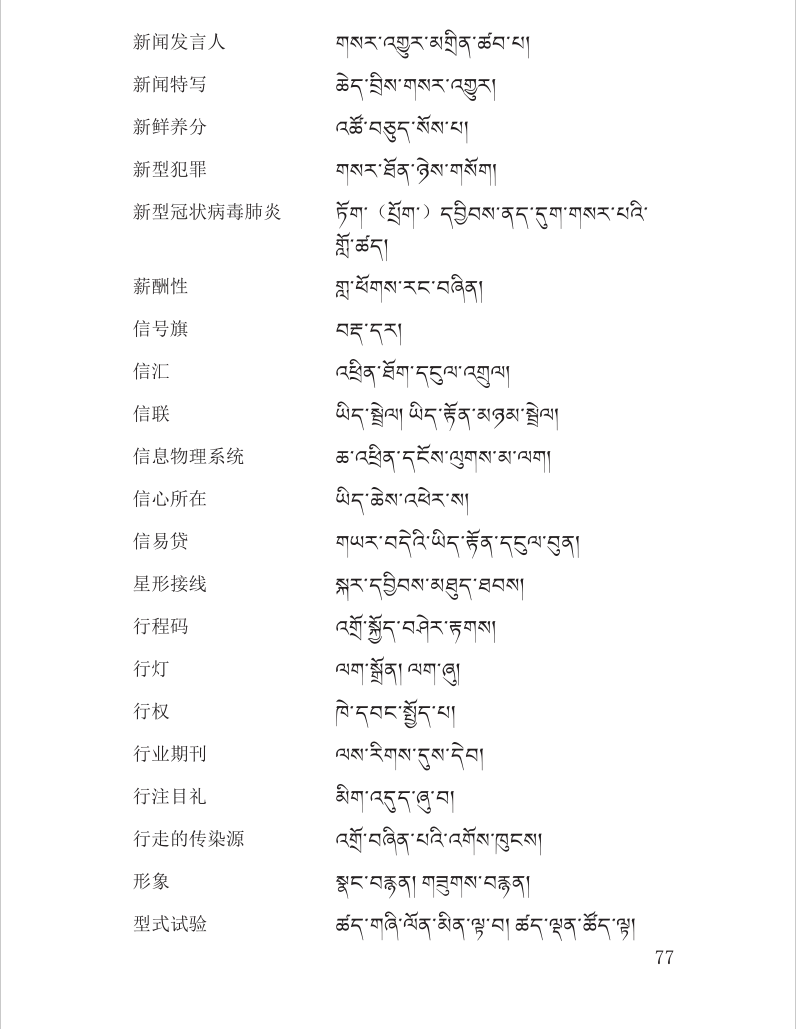 新闻发言人 གསར་འགྱུར་མགྲིན་ཚབ་པ།
新闻特写 ཆེད་བྲིས་གསར་འགྱུར།
新鲜养分 འཚོ་བཅུད་སོས་པ།
新型犯罪 གསར་ཐོན་ཉེས་གསོག།
新型冠状病毒肺炎 ཏོག་（པྲོག་）དབྱིབས་ནད་དུག་གསར་པའི་
གློ་ཚད།
薪酬性 གླ་ཕོགས་རང་བཞིན།
信号旗 བརྡ་དར།
信汇 འཕྲིན་ཐོག་དངུལ་འགྲུལ།
信联 ཡིད་སྦྲེལ། ཡིད་རྟོན་མཉམ་སྦྲེལ།
信息物理系统 ཆ་འཕྲིན་དངོས་ལུགས་མ་ལག།
信心所在 ཡིད་ཆེས་འཕེར་ས།
信易贷 གཡར་བདེའི་ཡིད་རྟོན་དངུལ་བུན།
星形接线 སྐར་དབྱིབས་མཐུད་ཐབས།
行程码 འགྲོ་སྐྱོད་བཤེར་རྟགས།
行灯 ལག་སྒྲོན། ལག་ཞུ།
行权 ཁེ་དབང་སྤྱོད་པ།
行业期刊 ལས་རིགས་དུས་དེབ།
行注目礼 མིག་འདུད་ཞུ་བ།
行走的传染源 འགྲོ་བཞིན་པའི་འགོས་ཁུངས།
形象 སྣང་བརྙན། གཟུགས་བརྙན།
型式试验 ཚད་གཞི་ལོན་མིན་ལྟ་བ། ཚད་ལྡན་ཚོད་ལྟ།
77